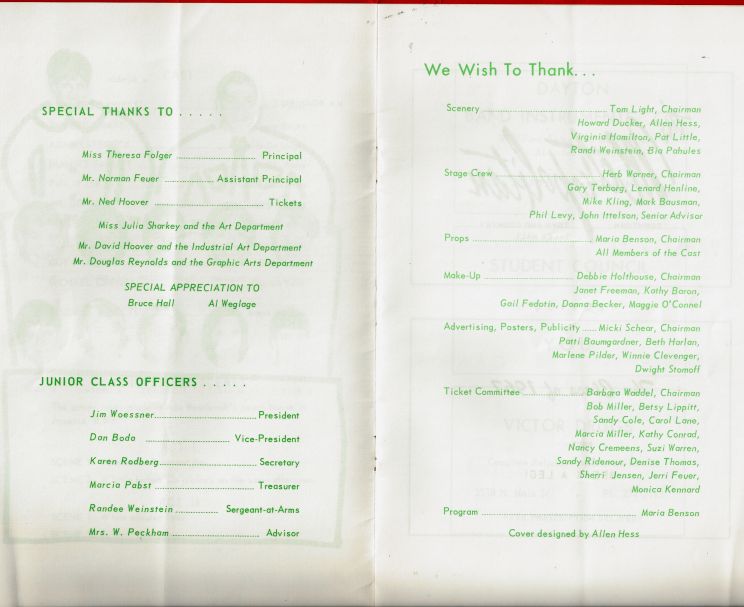 SPECIAL THANKS TO . . . . .
Miss Theresa Folger ........ Principal
Mr. Norman Feuer ........ Assistant Principal
Mr. Ned Hoover ........ Tickets
Miss Julia Sharkey and the Art Department
Mr. David Hoover and the Industrial Art Department
Mr. Douglas Reynolds and the Graphic Arts Department
SPECIAL APPRECIATION TO
Bruce Hall Al Weglage
JUNIOR CLASS OFFICERS . . . . .
Jim Woessner ........ President
Dan Boda ........ Vice-President
Karen Rodberg ........ Secretary
Marcia Pabst ........ Treasurer
Randee Weinstein ........ Sergeant-at-Arms
Mrs. W. Peckham ........ Advisor
We Wish To Thank. . .
Scenery ........ Tom Light, Chairman
Howard Ducker, Allen Hess,
Virginia Hamilton, Pat Little,
Randi Weinstein, Bia Pahules
Stage Crew ........ Herb Warner, Chairman
Gary Terborg, Lenard Henline,
Mike Kling, Mark Bausman,
Phil Levy, John Ittelson, Senior Advisor
Props ........ Maria Benson, Chairman
All Members of the Cast
Make-Up ........ Debbie Holthouse, Chairman
Janet Freeman, Kathy Baron,
Gail Fedotin, Donna Becker, Maggie O'Connel
Advertising, Posters, Publicity ..... Micki Schear, Chairman
Patti Baumgardner, Beth Harlan,
Marlene Pilder, Winnie Clevenger,
Dwight Stomoff
Ticket Committee ........ Barbara Waddel, Chairman
Bob Miller, Betsy Lippitt,
Sandy Cole, Carol Lane,
Marcia Miller, Kathy Conrad,
Nancy Cremeens, Suzi Warren,
Sandy Ridenour, Denise Thomas,
Sherri Jensen, Jerri Feuer,
Monica Kennard
Program ........ Maria Benson
Cover designed by Allen Hess